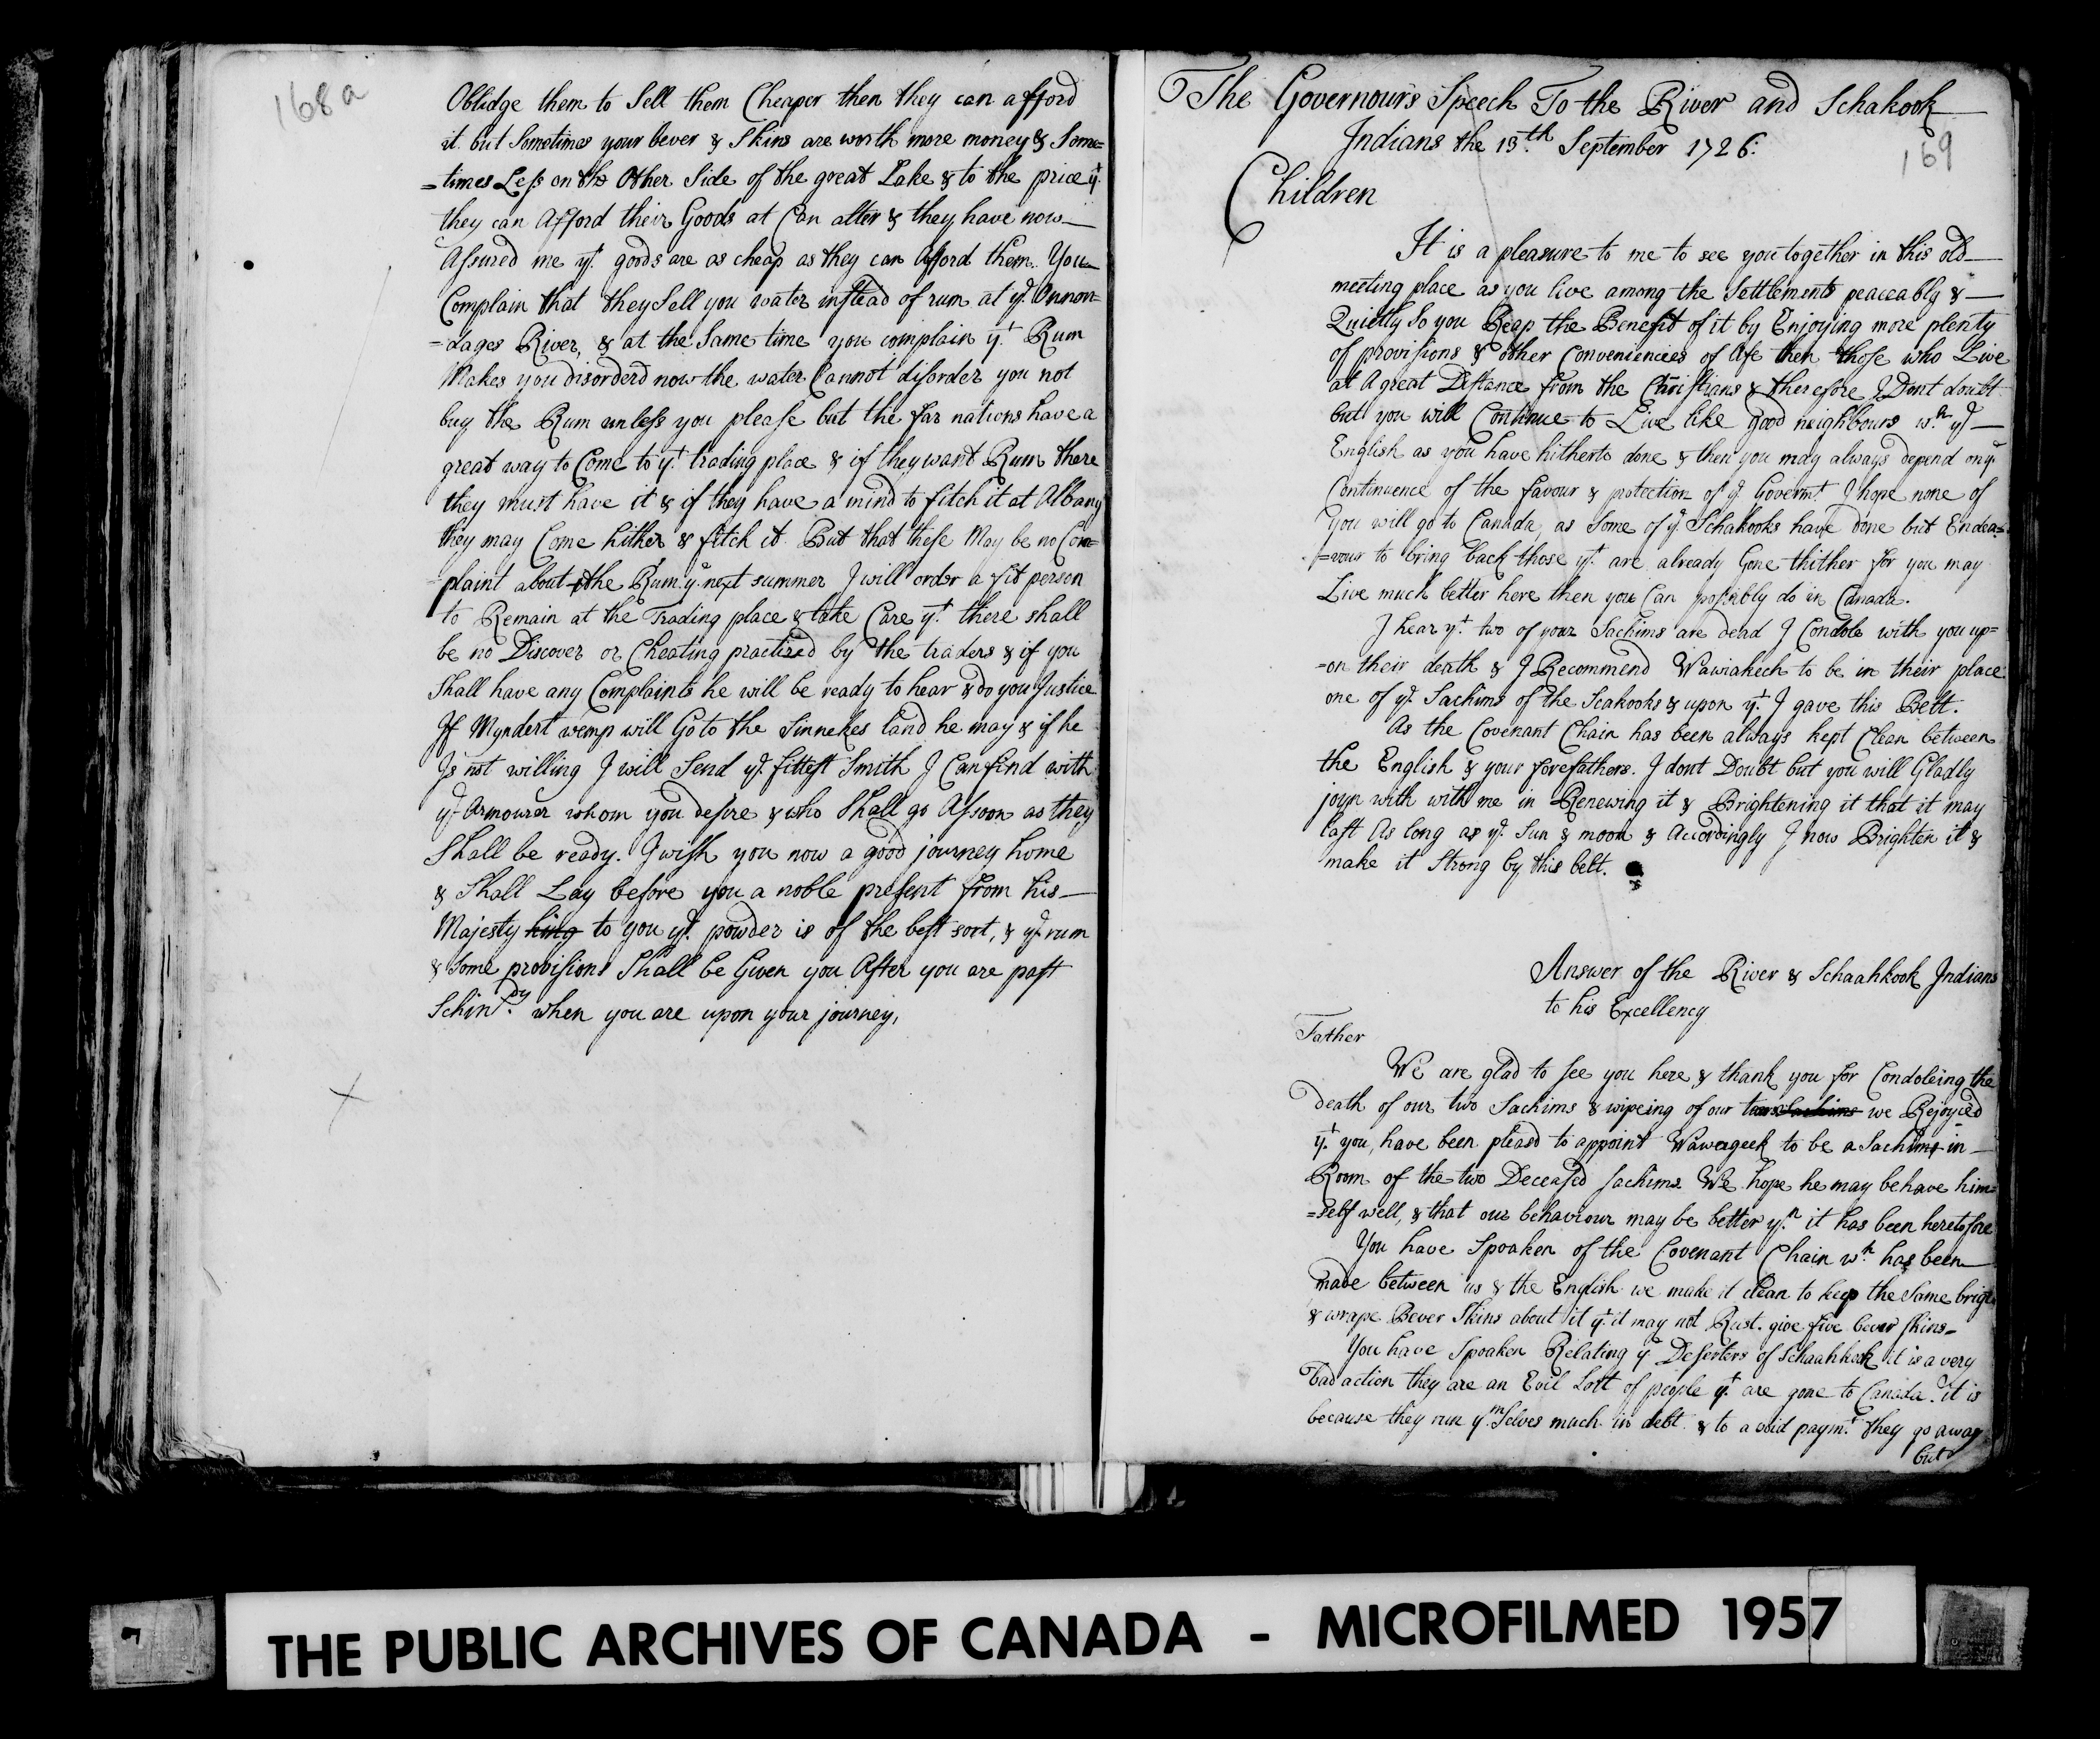 168a
Oblidge them to Sell them Cheaper then they can afford
it. but Sometimes your bever & Skins are worth more money & Some=
=times Less on the Other Side of the great Lake & to the price yt.
they can Afford their Goods at Can alter & they have now
Assured me yt. goods are as cheap as they can Afford them. You
Complain that they Sell you water instead of rum at ye. Onnon=
=dages River, & at the Same time you complain yt. Rum
Makes you disorderd now the water Cannot disorder you not
buy the Rum unless you please but the far nations have a
great way to Come to yt. trading place & if they want Rum there
they must have it & if they have a mind to fitch it at Albany
they may Come hither & fitch it. But that these May be no Com=
plaint about the Rum ye. next summer I will order a fit person
to Remain at the Trading place & take Care yt. there shall
be no Discover or Cheating practized by the traders & if you
Shall have any Complaints he will be ready to hear & do you Justice
If Myndert wemp will Go to the Sinnekes land he may & if he
Is not willing I will Send ye. fittest Smith I Can find with
ye. Armourer whom you desire & who Shall go Assoon as they
Shall be ready. I wish you now a good journey home
& Shall Lay before you a noble present from his
Majesty king to you ye. powder is of the best sort, & ye. rum
& Some provisions Shall be Given you After you are past
Schindy. when you are upon your journey,
The Governours Speech To the River and Schakook
Indians the 13th. September 1726:
169
Children
It is a pleasure to me to see you together in this old
meeting place as you live among the Settlements peaceably &
Quietly So you Reap the Benefit of it by Enjoying more plenty
of provisions & other Conveniencies of life then those who Live
at A great Distance from the Christians & therefore I Dont doubt
but you will Continue to Live like good neighbours wth. ye
English as you have hitherto done & then you may always depend on ye.
Continuence of the favour & protection of ye. Governt. I hope none of
you will go to Canada, as Some of ye. Schakooks have done but Endea=
=vour to bring back those yt. are already Gone thither for you may
Live much better here then you Can possibly do in Canada.
I hear yt. two of your Sachims are dead I Condole with you up=
=on their death & I Recommend Wawiakech to be in their place
one of ye. Sachims of the Scakooks & upon yt. I gave this Belt.
As the Covenant Chain has been always kept Clean between
the English & your forefathers. I dont Doubt but you will Gladly
joyn with with me in Renewing it & Brightening it that it may
last As long as ye. Sun & moon & Accordingly I now Brighten it &
make it Strong by this belt.
Answer of the River & Schaahkook Indians
to his Excellency
Father
We are glad to see you here & thank you for Condoleing the
death of our two Sachims & wipeing of our tears Sachims we Rejoyced
yt. you, have been pleasd to appoint Wawageek to be a Sachims in
Room of the two Deceased Sachims We hope he may behave him=
=self well, & that our behaviour may be better yn. it has been heretofore
You have Spoaken of the Covenant Chain wh. has been
made between us & the English we make it clean to keep the Same brigt
& wrape Bever Skins about it yt. it may not Rust. give five bever skins
You have Spoaken Relating ye Deserters of Schaahkook it is a very
bad action they are an Evil Sort of people yt. are gone to Canada. it is
because they run ym. Selves much in debt & to a void paymt. they go away
but
THE PUBLIC ARCHIVES OF CANADA - MICROFILMED 1957